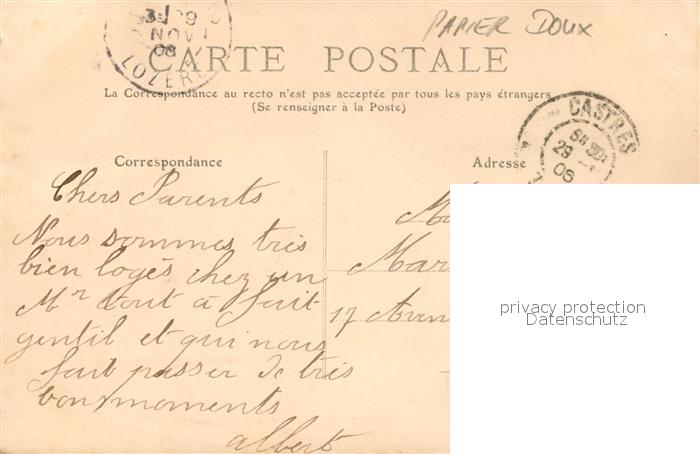 PAPIER DOUX
29
NOV
08
LOZERE
CARTE POSTALE
La Correspondance au recto n'est pas acceptée par tous les pays étrangers
(Se renseigner à la Poste)
CASTRES
29
06
Correspondance
Adresse
Chers Parents
Nous sommes très
bien logés chez un
Mr tout à fait
gentil et qui nous
fait passer de très
bons moments
albert
M
Mar
17 Aven
privacy protection
Datenschutz